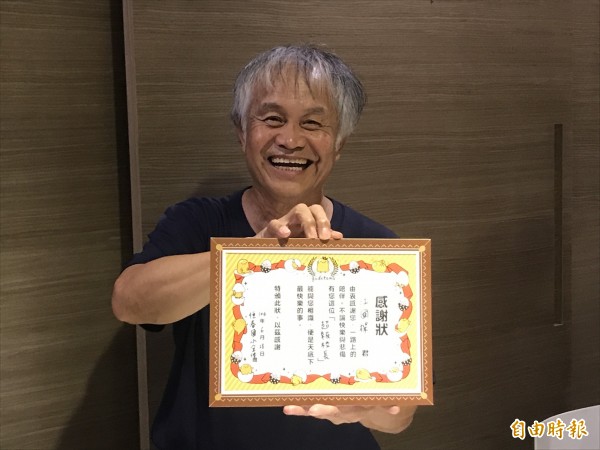 感謝狀
君
由衷感謝您,一路上的
陪伴,不論快樂與悲傷
有您這位「超級校長」
能與您相識,便是天底下
最快樂的事。
特頒此狀,以茲感謝
自由時報